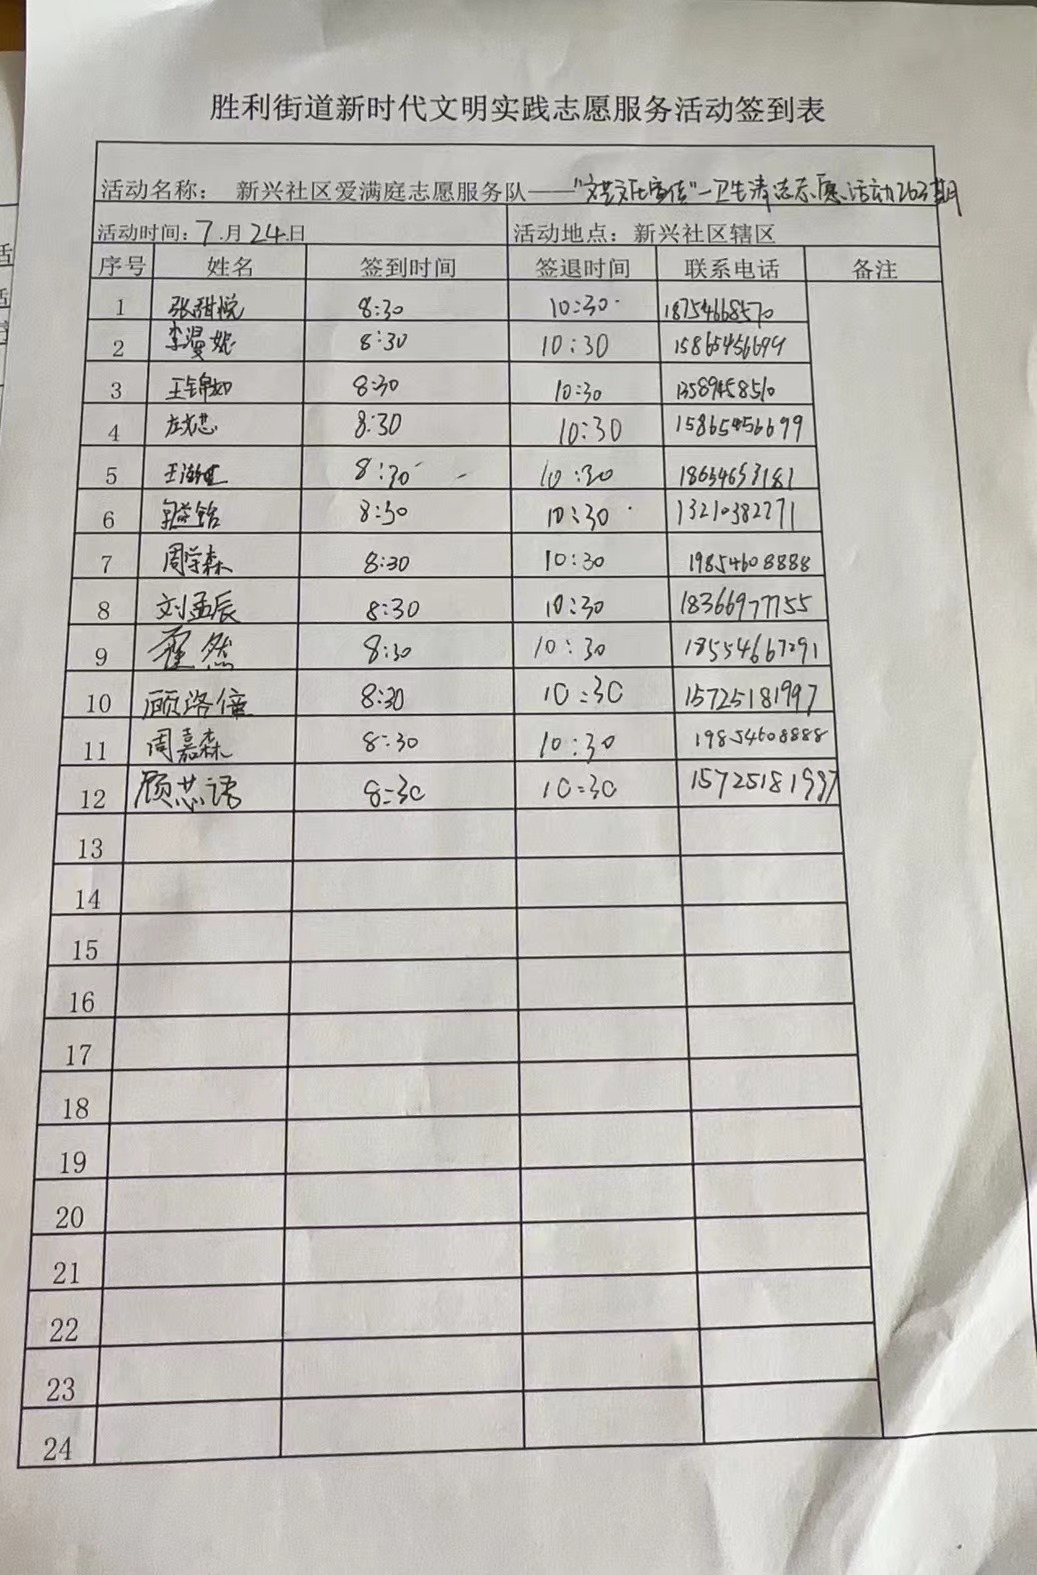 胜利街道新时代文明实践志愿服务活动签到表
活动名称： 新兴社区爱满庭志愿服务队——"文艺文化宣传"—卫生清志愿活动263期
活动时间：7月24日 活动地点：新兴社区辖区
序号 姓名 签到时间 签退时间 联系电话 备注
1 张甜悦 8:30 10:30 18754668570
2 李漫妮 8:30 10:30 15865456699
3 王锦如 8:30 10:30 13589458510
4 8:30 10:30 15865456699
5 8:30 10:30 18654653181
6 8:30 10:30 13210382771
7 周学森 8:30 10:30 19854608888
8 刘孟辰 8:30 10:30 18366977755
9 霍然 8:30 10:30 18554667291
10 顾洛僮 8:30 10:30 15725181997
11 周嘉森 8:30 10:30 19854608888
12 顾芯语 8:30 10:30 15725181997
13
14
15
16
17
18
19
20
21
22
23
24